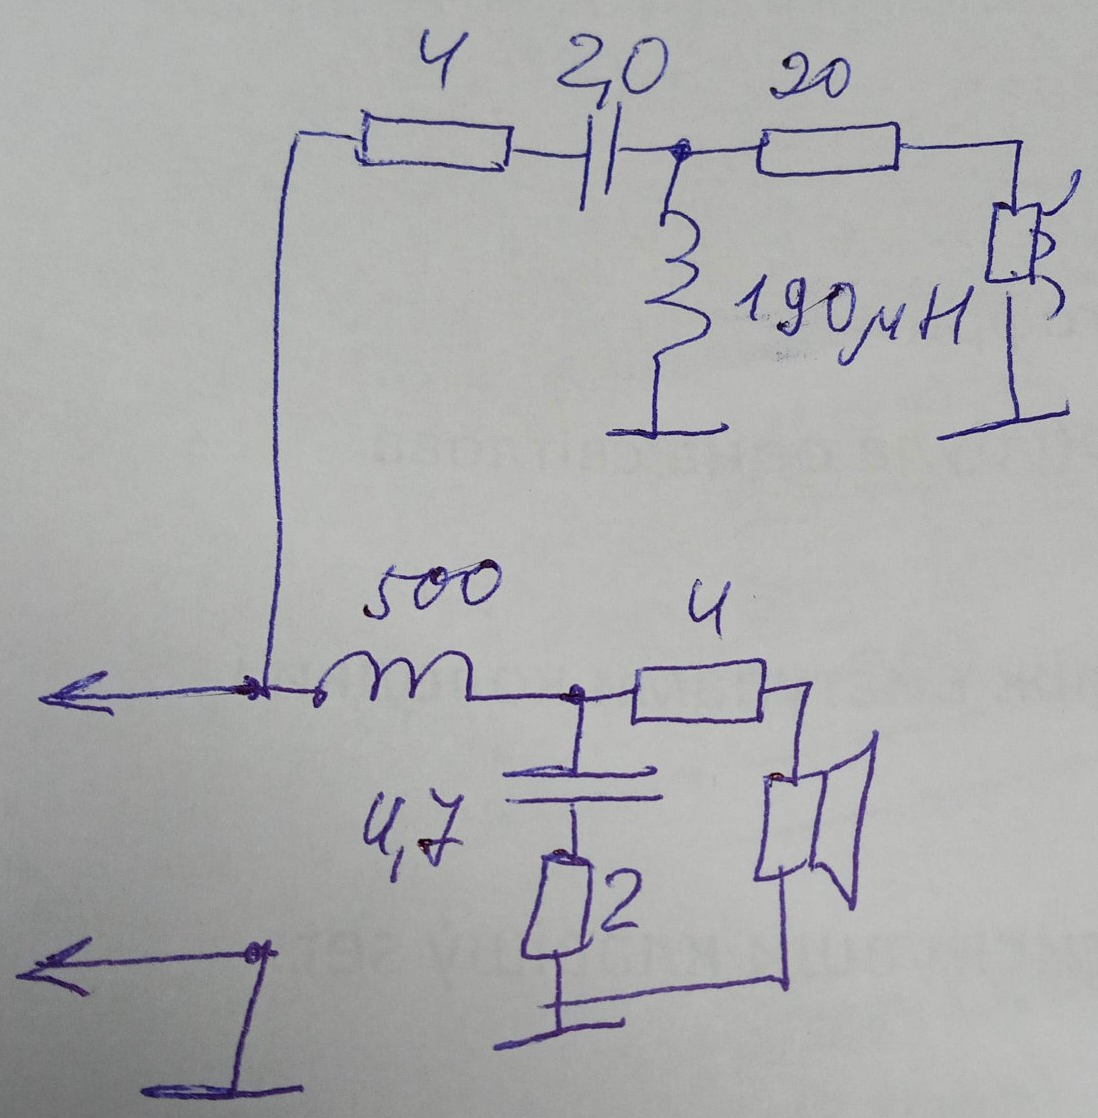 4 2,0 20
190μH
500 4
4,7
2